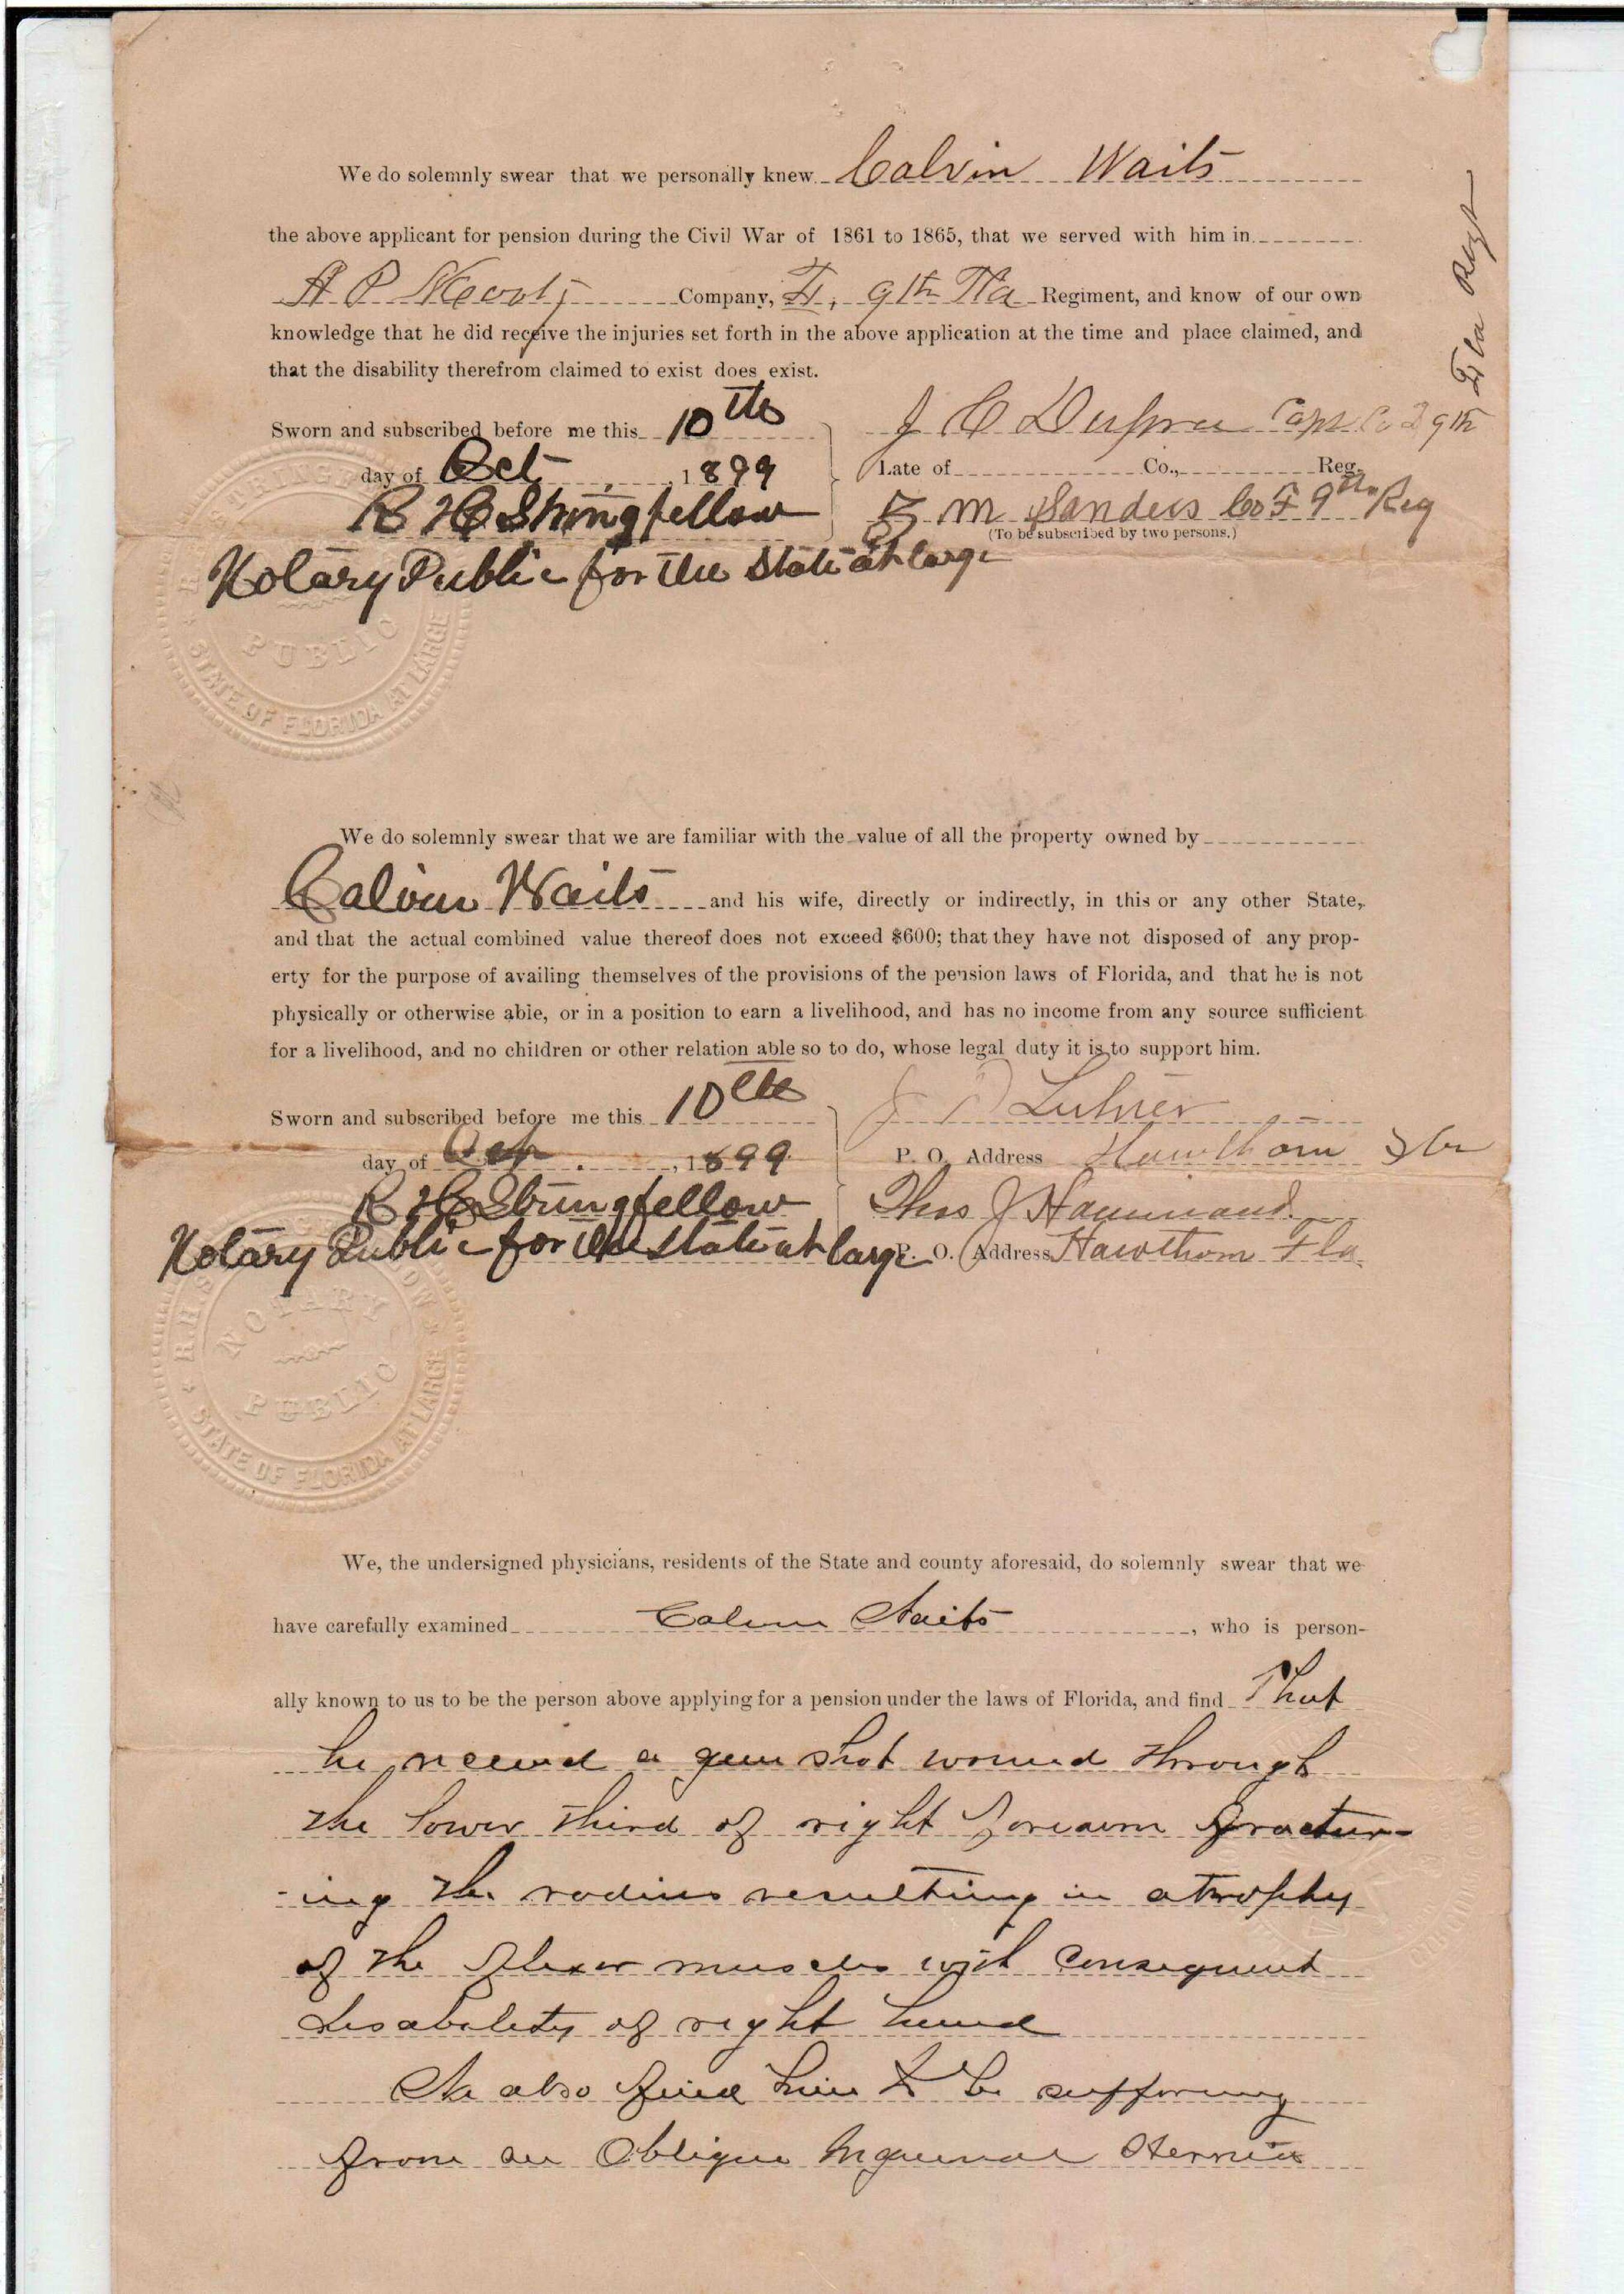 We do solemnly swear that we personally knew Calvin Waits
the above applicant for pension during the Civil War of 1861 to 1865, that we served with him in
A P Company, F, 9th Fla Regiment, and know of our own
knowledge that he did receive the injuries set forth in the above application at the time and place claimed, and
that the disability therefrom claimed to exist does exist.
Sworn and subscribed before me this 10th
day of Oct, 1899
R H Stringfellow
Notary Public for the State at large
J C Dupree Capt Co 9th
Fla Regt
Late of Co., Reg.
M Sanders Co F 9th Reg
(To be subscribed by two persons.)
PUBLIC
STATE OF FLORIDA AT LARGE
We do solemnly swear that we are familiar with the value of all the property owned by
Calvin Waits and his wife, directly or indirectly, in this or any other State,
and that the actual combined value thereof does not exceed $600; that they have not disposed of any prop-
erty for the purpose of availing themselves of the provisions of the pension laws of Florida, and that he is not
physically or otherwise able, or in a position to earn a livelihood, and has no income from any source sufficient
for a livelihood, and no children or other relation able so to do, whose legal duty it is to support him.
Sworn and subscribed before me this 10th
day of Oct. , 1899
R H Stringfellow
Notary Public for the State at large
J
P. O. Address Hawthorn Fla
Thos J Hammond
P. O. Address Hawthorn Fla
NOTARY
PUBLIC
STATE OF FLORIDA AT LARGE
We, the undersigned physicians, residents of the State and county aforesaid, do solemnly swear that we
have carefully examined Calvin Waits , who is person-
ally known to us to be the person above applying for a pension under the laws of Florida, and find That
he received a gun shot wound through
the lower third of right forearm fractur-
-ing the radius resulting in atrophy
of the flexor muscles with consequent
disability of right hand
We also find him to be suffering
from an Oblique Inguinal Hernia